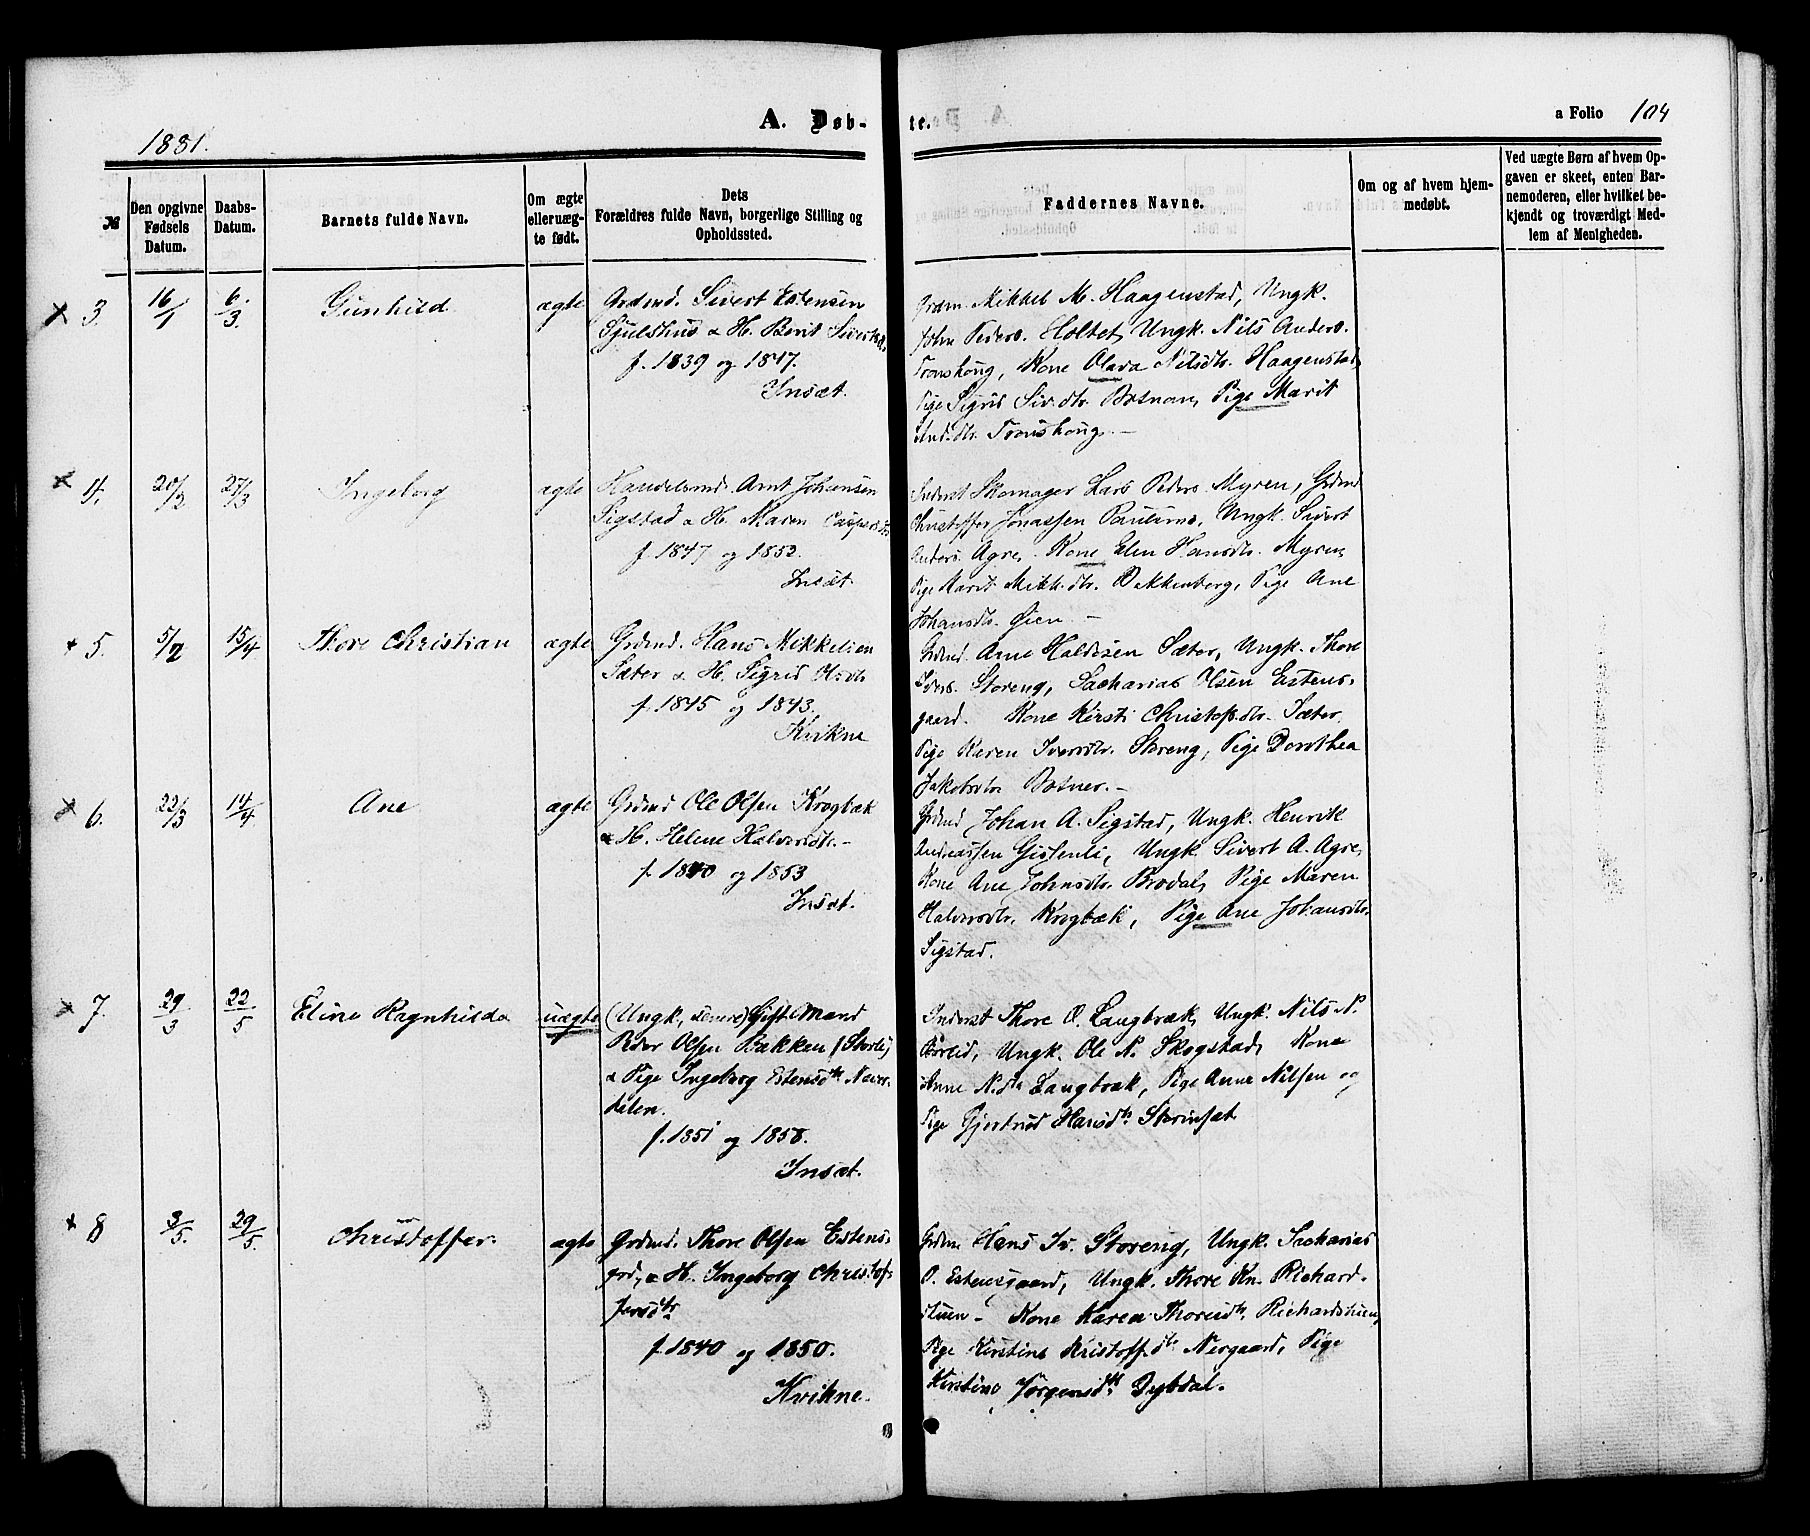 1881.
A. Døb-
te.
a Folio 104
№
Den opgivne Fødsels Datum.
Daabs-Datum.
Barnets fulde Navn.
Om ægte eller uægte født.
Dets Forældres fulde Navn, borgerlige Stilling og Opholdssted.
Faddernes Navne.
Om og af hvem hjemmedøbt.
Ved uægte Børn af hvem Opgaven er skeet, enten Barnemoderen, eller hvilket bekjendt og troværdigt Medlem af Menigheden.
3. 16/1 6/3. Gunhild ægte
Grdmd. Sivert Estensen
& H. Berit Sivertsd.
f. 1839 og 1847.
Insæt.
Mikkel M. Haagenstad, Ungk.
John Peders. Holtet, Ungk. Nils Anders.
Tronshaug, Kone Olava Nilsdtr. Haagenstad,
Pige Sigrid Siv.dtr. Pige Marit
And.dtr. Tronshaug. -
4. 20/2 27/3 Ingeborg ægte
Handelsmd. Arnt Johansen
Sigstad & H. Maren Caspersdtr
f. 1847 og 1852.
Insæt.
Inderst Skomager Lars Peders. Myren, Grdmd
Christoffer Jonassen Ungk. Sivert
Anders. Agre, Kone Elen Hansdtr. Myren,
Pige Marit Mikk.dtr. Bakkenberg, Pige Ane
Johansdtr. Øien. -
5. 5/2 15/4 Thore Christian ægte
Grdmd. Hans Mikkelsen
Sæter & H. Sigrid
f. 1845 og 1843.
Kvikne
Grdmd. Arne Haldosen Sæter, Ungk. Thore
Ivers. Storeng, Sacharias Olsen Estens-
gaard. Kone Kirsti Christof.dtr. Sæter,
Pige Karen Iversdtr. Storeng, Pige Dorothea
Jakobsdtr. -
6. 22/3 14/4 Ane ægte
Grdmd Ole Olsen Krogbæk
& H. Helene Halvorsdtr. -
f. 1840 og 1853
Insæt.
Grdmd Johan A. Sigstad, Ungk. Henrik
Andreassen Gisenli, Ungk. Sivert A. Agre,
Kone Ane Johnsdtr. Brodal, Pige Maren
Halvorsdtr. Krogbæk, Pige Ane Johansdtr.
Sigstad.
7. 29/3 22/5 Eline Ragnhilda uægte
(Ungk, senere) Gift Mand
Peder Olsen Bækken (Storli)
& Pige Ingeborg Estensdtr Never-
dalen.
f. 1851 og 1858.
Insæt.
Inderst Thore O. Langbræk, Ungk. Nils N.
Ungk. Ole N. Skogstad, Kone
Anne N.dtr Langbræk, Pige Anne Nilsen og
Pige Gjertrud Hansdtr.
8 3/5. 29/5. Christoffer. ægte
Grdmd. Thore Olsen Estens-
grd, & H. Ingeborg Christof-
fersdtr
f. 1840 og 1850.
Kvikne.
Hans Iv. Storeng, Ungk. Sacharias
O. Estensgaard, Ungk. Thore Kn. Richard-
stuen - Kone Karen Thoresdtr. Richardstuen,
Pige Kirstine Kristoff.dtr Nergaard, Pige
Kirstine Jørgensdtr. Dybdal.